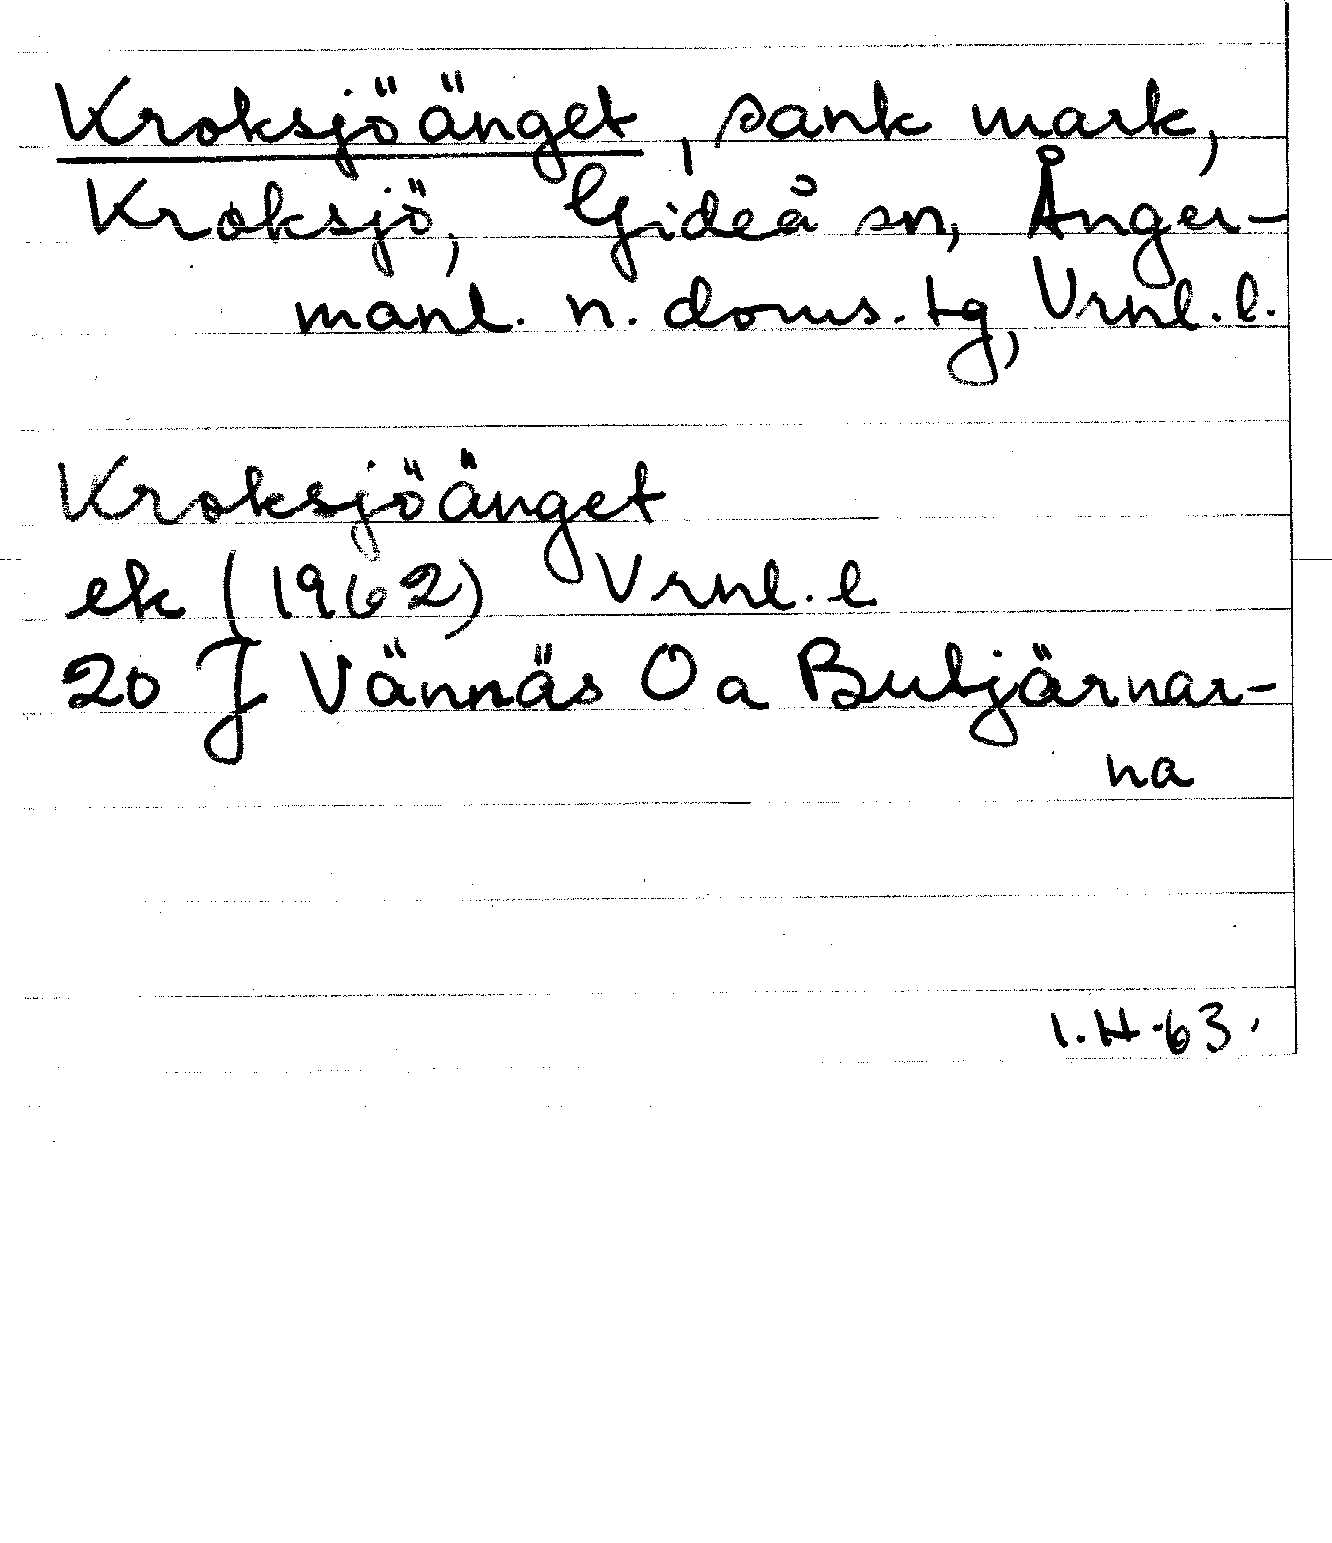 Kroksjöänget, sank mark,
Kroksjö, Gideå sn, Ånger-
manl. n. doms. tg, Vrnl. l.
Kroksjöänget
ek (1962) Vrnl. l
20 J Vännäs O a Butjärnar-
na
I. H -63.